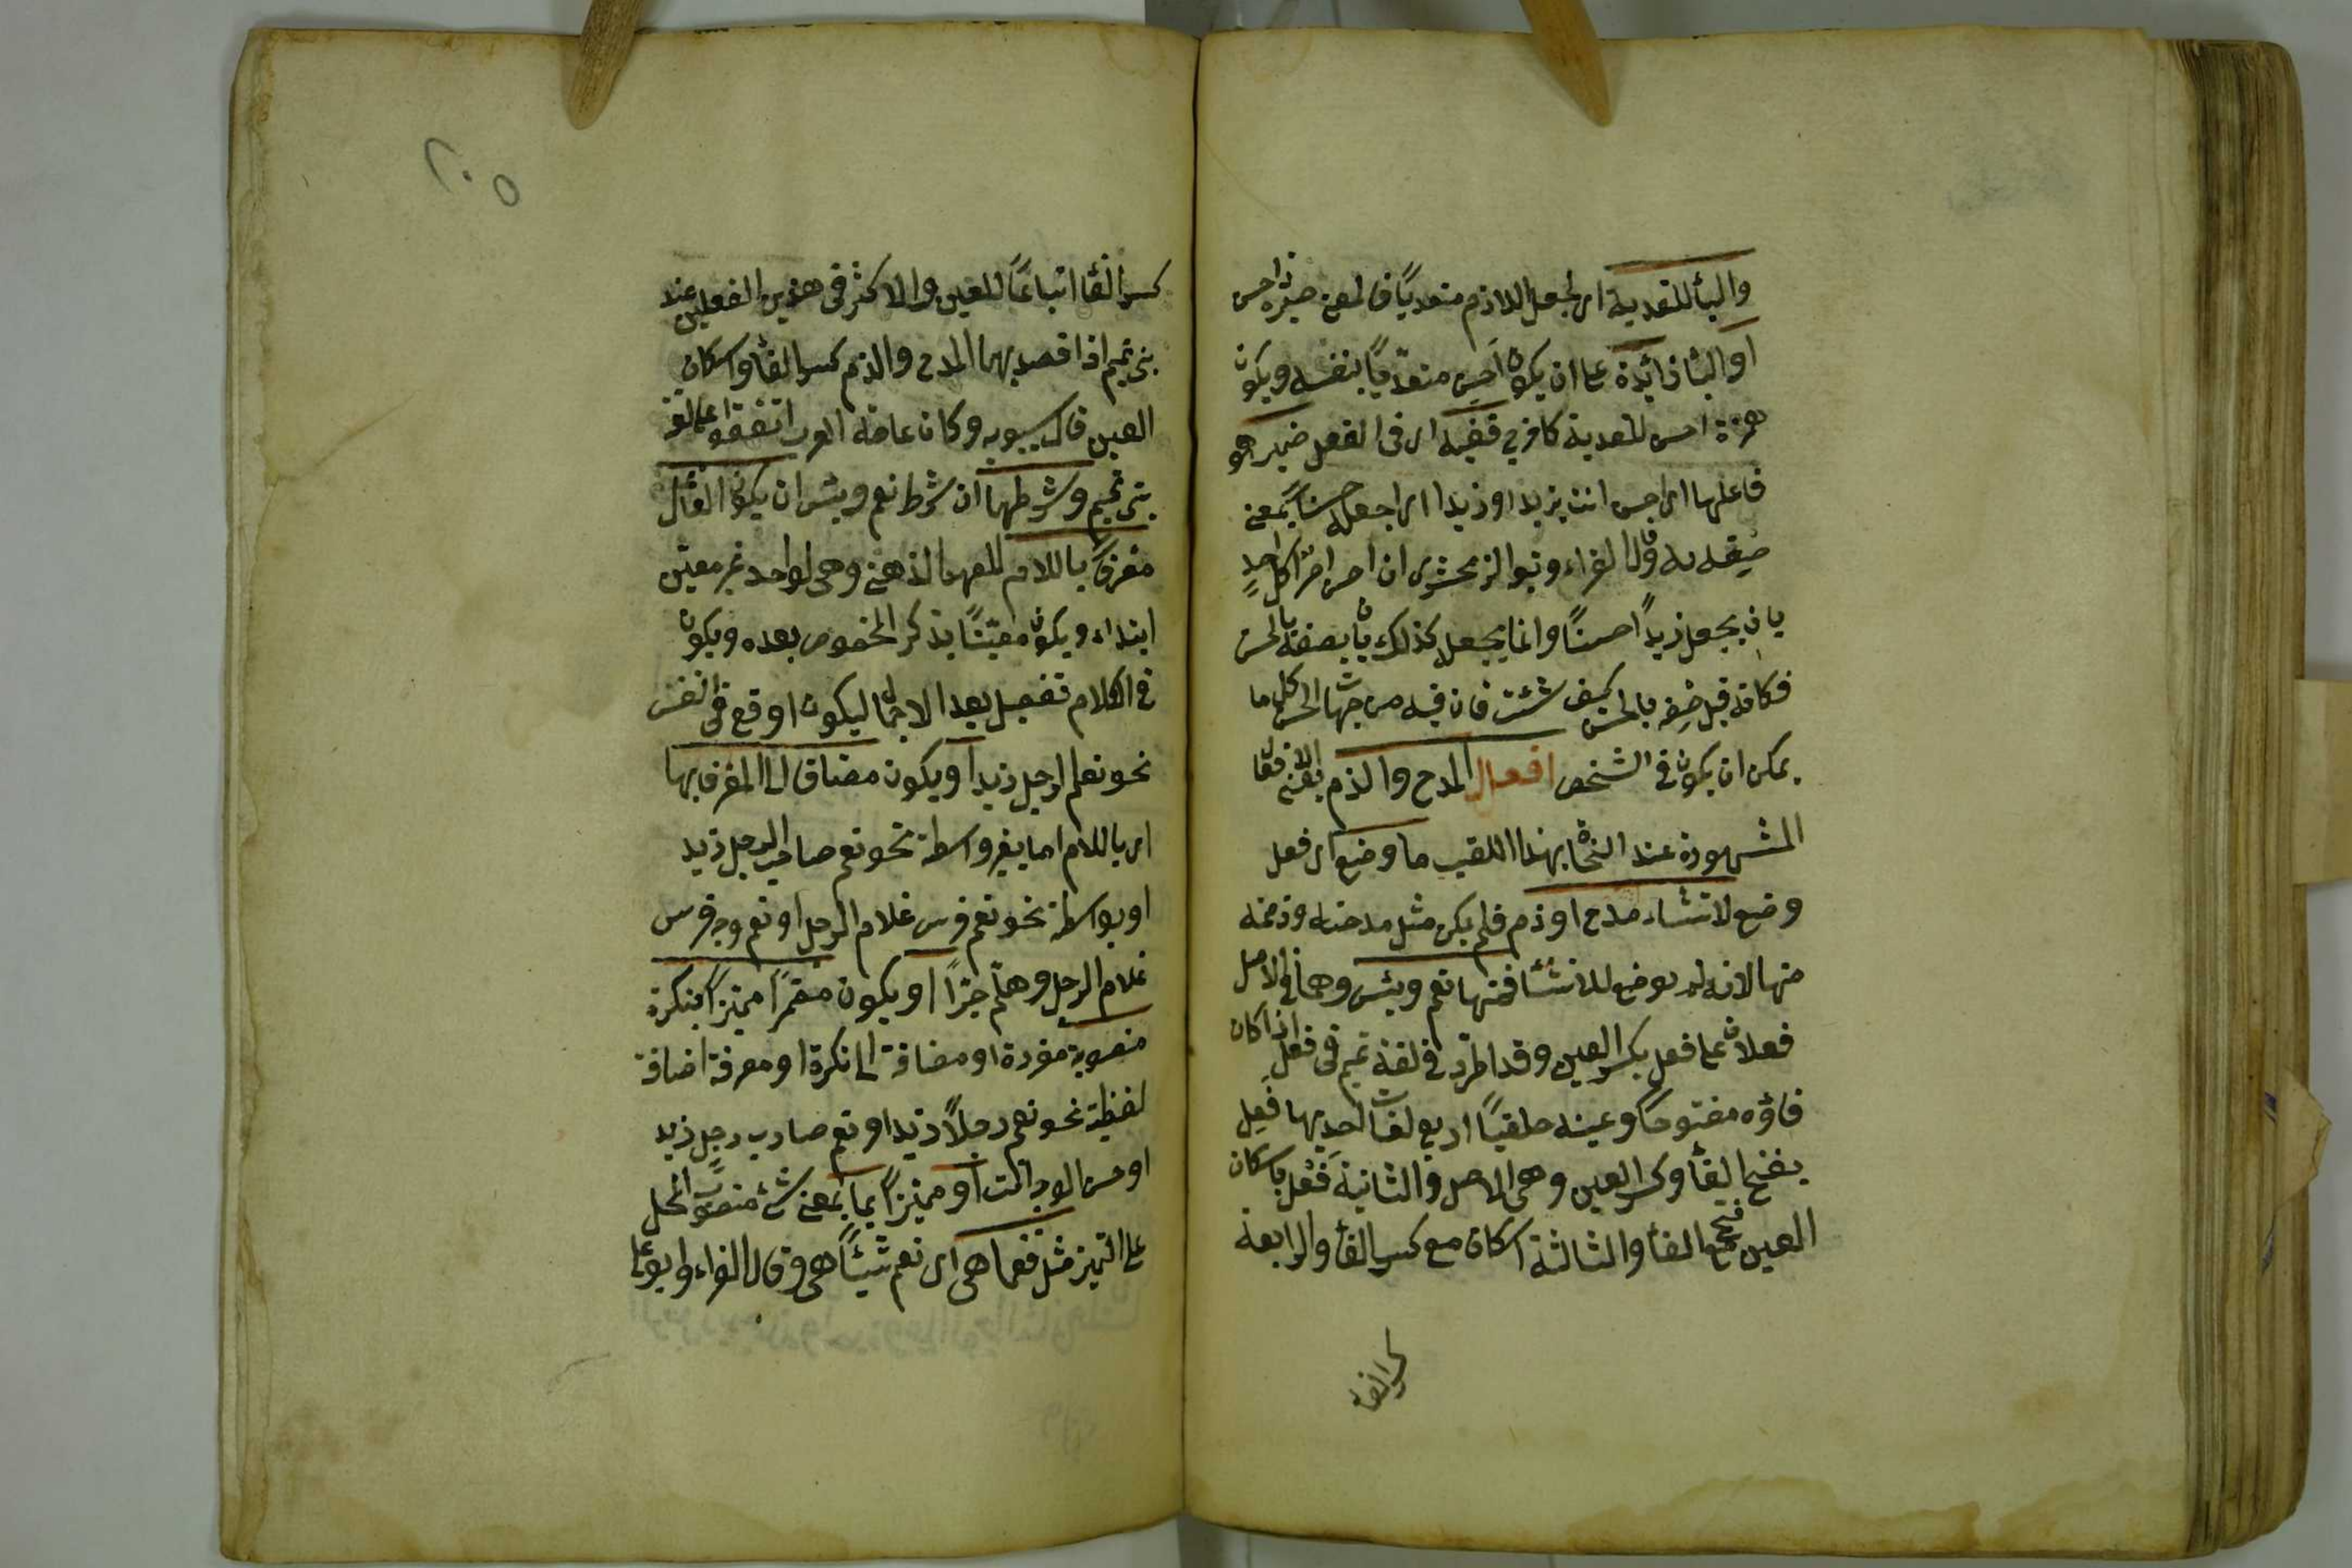 والباء للتعدية اى لجعل اللازم متعديًا فالمعنى صيره ذا حسن
او الباء زائدة على ان يكون احسن متعديًا بنفسه ويكون
همزة احسن للتعدية كافرى ففيه اى فى الفعل ضمير هو
فاعلها اى احسن انت بزيد او زيدا اى اجعله حسنًا بمعنى
صفه به وقال الفراء وتبوا الزمخشرى ان احسن امر لكل احدٍ
بان يجعل زيدًا حسنًا وانما يجعله كذلك بان يصفه بالحسن
فكانه قيل صفه بالحسن كيف شئت فان فيه من جهات الحسن كل ما
يمكن ان يكون فى الشخص افعال المدح والذم يعنى الافعال
المشهورة عند النحاة بهذا اللقب ما وضع اى فعل
وضع لانشاء مدح او ذم فلم يكن مثل مدحته وذممته
منها لانه لم يوضع للانشاء فمنها نعم وبئس وهما فى الاصل
فعلان على فعل بكسر العين وقد اطرد فى لغة تميم فى فعل اذا كان
فاؤه مفتوحًا وعينه حلقيًا اربع لغات احديها فعِل
بفتح الفاء وكسر العين وهى الاصل والثانية فَعْل باسكان
العين مع فتح الفاء والثالثة اسكان مع كسر الفاء والرابعة
كسر الفاء
٢٠٥
كسر الفاء اتباعًا للعين والاكثر فى هذين الفعلين عند
بنى تميم اذا قصد بهما المدح والذم كسر الفاء واسكان
العين قال سيبويه وكان عامة العرب اتفقوا على لغة
بنى تميم وشرطهما اى شرط نعم وبئس ان يكون الفاعل
معرفًا باللام للعهد الذهنى وهى لواحد غير معين
ابتداء ويكون معينًا بذكر المخصوص بعده ويكون
فى الكلام تفصيل بعد الاجمال ليكون اوقع فى النفس
نحو نعم الرجل زيد او يكون مضافا الى المعرف بها
اى باللام اما بغير واسطة نحو نعم صاحب الرجل زيد
او بواسطة نحو نعم فرس غلام الرجل او نعم وجه فرس
غلام الرجل وهلم جرًا او يكون مضمرًا مميزًا بنكرة
منصوبة مفردة او مضافة الى نكرة او معرفة اضافة
لفظية نحو نعم رجلًا زيد او نعم ضارب رجل زيد
او حسن الوجه انت او مميزًا بما بمعنى شئ منصوب المحل
على التميز مثل فنعما هى اى نعم شيئًا هى وقال الفراء وابو على